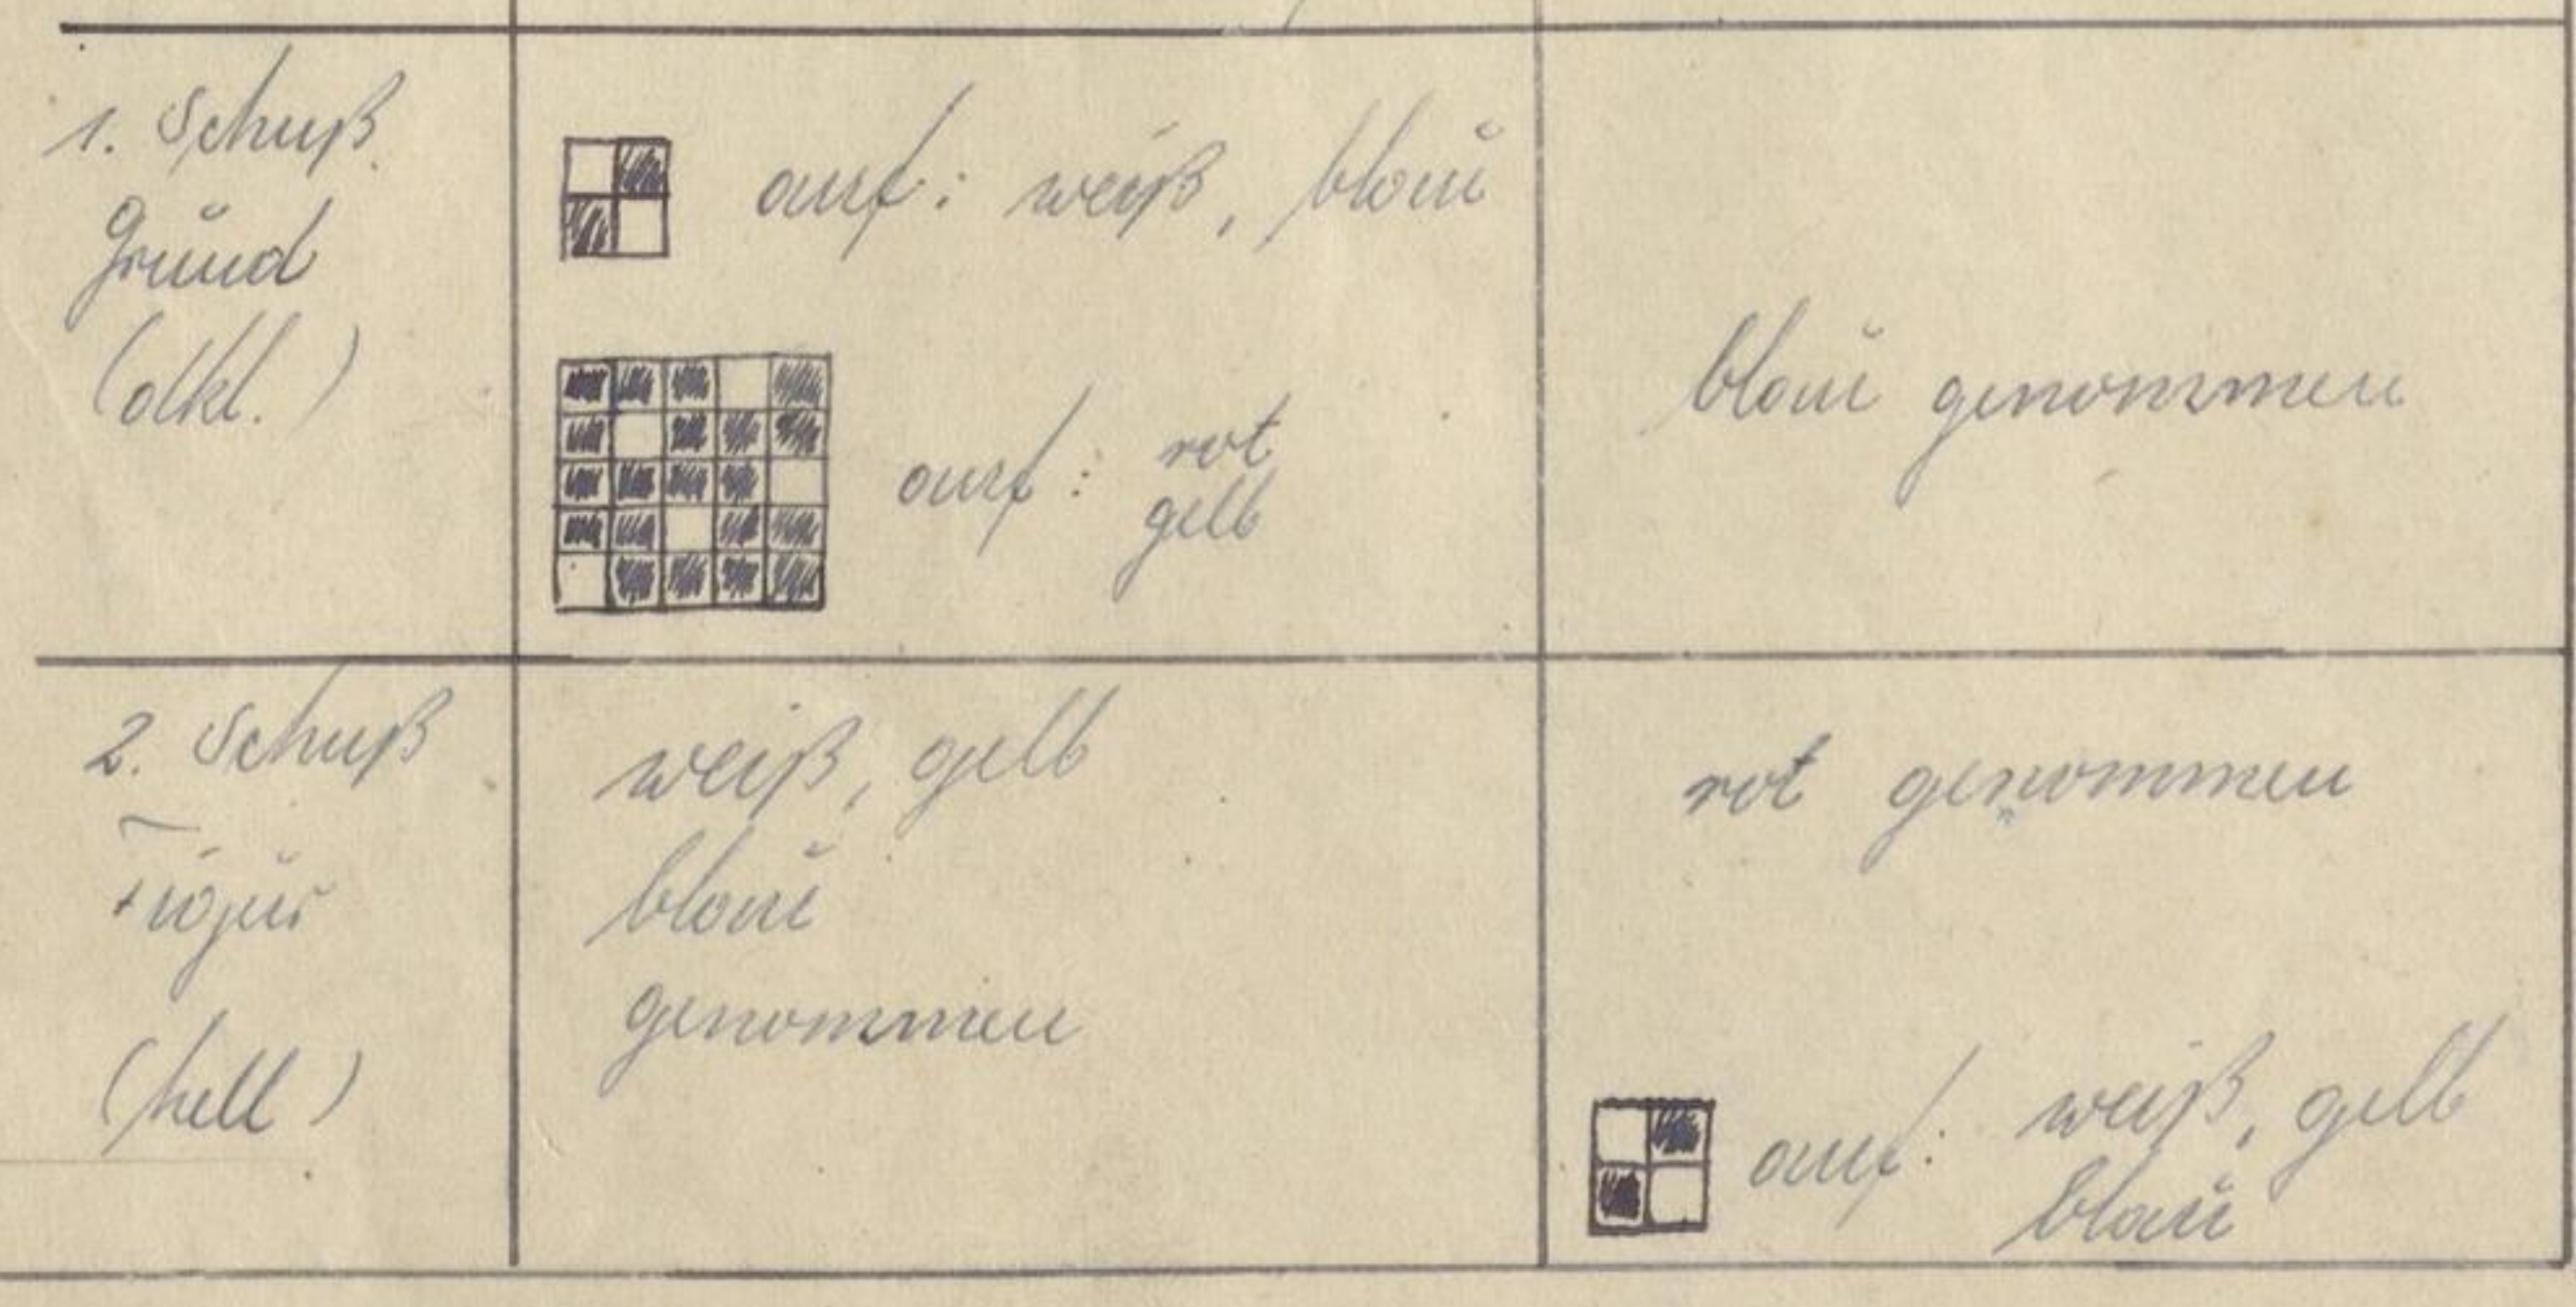 1. Schuß
Grund
(dkl.)
auf: weiß, blau
auf: rot
gelb
blau genommen
2. Schuß
Figur
(hell)
weiß, gelb
blau
genommen
rot genommen
auf: weiß, gelb
blau